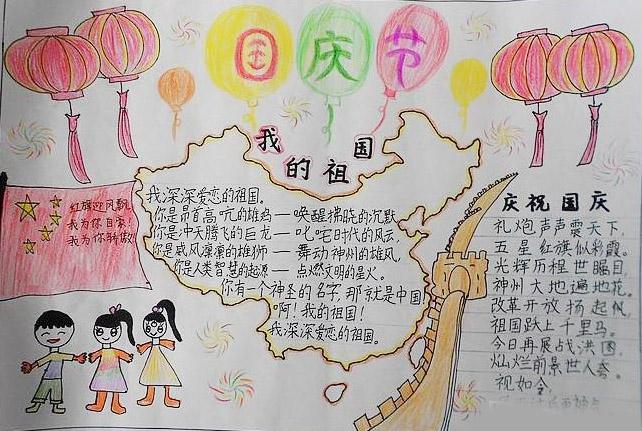 国庆节
我的祖国
红旗迎风飘,
我为你自豪!
我为你骄傲!
我深深爱恋的祖国。
你是昂首高吭的雄鸡——唤醒拂晓的沉默,
你是冲天腾飞的巨龙——叱咤时代的风云,
你是威风凛凛的雄狮——舞动神州的雄风,
你是人类智慧的起源——点燃文明的星火。
你有一个神圣的名字,那就是中国!
啊!我的祖国!
我深深爱恋的祖国。
庆祝国庆
礼炮声声震天下,
五星红旗似彩霞。
光辉历程世瞩目,
神州大地遍地花。
改革开放扬起帆,
祖国跃上千里马。
今日再展战洪图,
灿烂前景世人夸。
视如今,